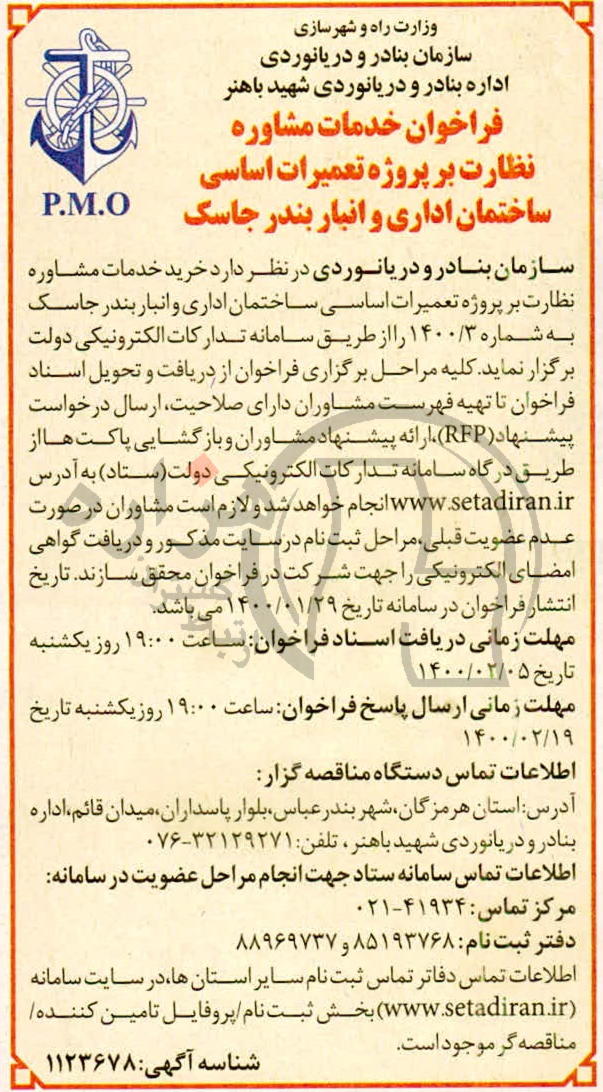 وزارت راه و شهرسازی
سازمان بنادر و دریانوردی
اداره بنادر و دریانوردی شهید باهنر
فراخوان خدمات مشاوره
نظارت بر پروژه تعمیرات اساسی
ساختمان اداری و انبار بندر جاسک
P.M.O
سازمان بنادر و دریانوردی در نظر دارد خرید خدمات مشاوره
نظارت بر پروژه تعمیرات اساسی ساختمان اداری و انبار بندر جاسک
به شماره ۱۴۰۰/۳ را از طریق سامانه تدارکات الکترونیکی دولت
برگزار نماید. کلیه مراحل برگزاری فراخوان از دریافت و تحویل اسناد
فراخوان تا تهیه فهرست مشاوران دارای صلاحیت، ارسال درخواست
پیشنهاد (RFP)، ارائه پیشنهاد مشاوران و بازگشایی پاکت ها از
طریق درگاه سامانه تدارکات الکترونیکی دولت (ستاد) به آدرس
www.setadiran.ir انجام خواهد شد و لازم است مشاوران در صورت
عدم عضویت قبلی، مراحل ثبت نام در سایت مذکور و دریافت گواهی
امضای الکترونیکی را جهت شرکت در فراخوان محقق سازند. تاریخ
انتشار فراخوان در سامانه تاریخ ۱۴۰۰/۰۱/۲۹ می باشد.
مهلت زمانی دریافت اسناد فراخوان: ساعت ۱۹:۰۰ روز یکشنبه
تاریخ ۱۴۰۰/۰۲/۰۵
مهلت زمانی ارسال پاسخ فراخوان: ساعت ۱۹:۰۰ روز یکشنبه تاریخ
۱۴۰۰/۰۲/۱۹
اطلاعات تماس دستگاه مناقصه گزار:
آدرس: استان هرمزگان، شهر بندرعباس، بلوار پاسداران، میدان قائم، اداره
بنادر و دریانوردی شهید باهنر، تلفن: ۳۲۱۲۹۲۷۱-۰۷۶
اطلاعات تماس سامانه ستاد جهت انجام مراحل عضویت در سامانه:
مرکز تماس: ۴۱۹۳۴-۰۲۱
دفتر ثبت نام: ۸۵۱۹۳۷۶۸ و ۸۸۹۶۹۷۳۷
اطلاعات تماس دفاتر تماس ثبت نام سایر استان ها، در سایت سامانه
(www.setadiran.ir) بخش ثبت نام/پروفایل تامین کننده/
مناقصه گر موجود است.
شناسه آگهی: ۱۱۲۳۶۷۸